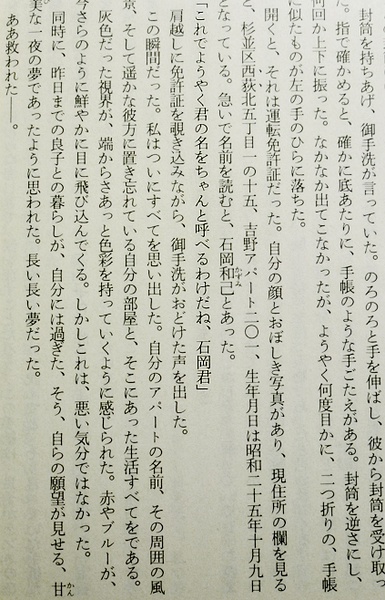 封筒を持ちあげ、御手洗が言っていた。のろのろと手を伸ばし、彼から封筒を受け取っ
た。指で確かめると、確かに底あたりに、手帳のような手ごたえがある。封筒を逆さにし、
何回か上下に振った。なかなか出てこなかったが、ようやく何度目かに、二つ折りの、手帳
に似たものが左の手のひらに落ちた。
開くと、それは運転免許証だった。自分の顔とおぼしき写真があり、現住所の欄を見る
と、杉並区西荻北五丁目一の十五、吉野アパート二〇一、生年月日は昭和二十五年十月九日
となっている。急いで名前を読むと、石岡和己とあった。
「これでようやく君の名をちゃんと呼べるわけだね、石岡君」
肩越しに免許証を覗き込みながら、御手洗がおどけた声を出した。
この瞬間だった。私はついにすべてを思い出した。自分のアパートの名前、その周囲の風
景、そして遥かな彼方に置き忘れている自分の部屋と、そこにあった生活すべてをである。
灰色だった視界が、端からさあっと色彩を持っていくように感じられた。赤やブルーが、
今さらのように鮮やかに目に飛び込んでくる。しかしこれは、悪い気分ではなかった。
同時に、昨日までの良子との暮らしが、自分には過ぎた、そう、自らの願望が見せる、甘
美な一夜の夢であったように思われた。長い長い夢だった。
ああ救われた——。